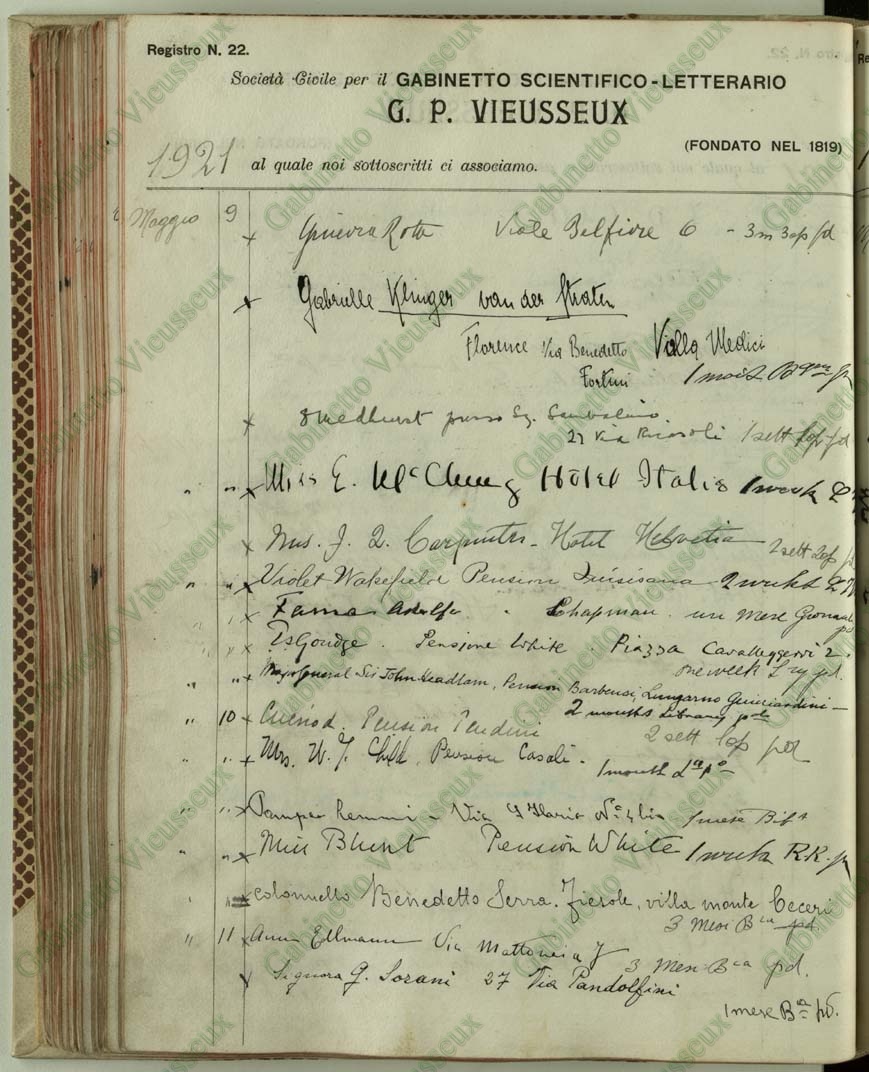 Registro N. 22.
Società Civile per il GABINETTO SCIENTIFICO-LETTERARIO
G. P. VIEUSSEUX
(FONDATO NEL 1819)
1921 al quale noi sottoscritti ci associamo.
Maggio 9 x Ginevra Rotta Viale Belfiore 6 - 3 m 3 op pd
x Gabrielle Klinger van der Straten
Florence Via Benedetto Villa Medici
Fortini 1 mois
x Smedhurst presso Sg.
27 Via Ricasoli 1 sett 1 op pd
" " x Miss E. McClung Hôtel Italia 1 week
x Mrs. J. Q. Carpenter - Hotel Helvetia 2 sett 2 op
" " x Violet Wakefield Pension Quisisana 2 weeks
" x Fama Adolfo Chapman un mese
" " x Goudge. Pensione White. Piazza Cavalleggeri 2.
one week pd.
" " x Major General Sir John Headlam, Pension Barbensi, Lungarno Guicciardini -
2 months Library pd
" 10 x Cuénod. Pension Pendini 2 sett 1 op pd
" " x Mrs. W. J. Pension Casali - 1 month
" " x Via S Ilario No 4 bis 1 mese
" " x Miss Blunt Pension White 1 week R.R.
" " x Colonnello Benedetto Serra. Fiesole, villa monte Ceceri
3 Mesi Bca pd.
" 11 x Anna Ellmann Via Mattonaia 7 3 Mesi Bca pd.
x Signora G. Sorani 27 Via Pandolfini
1 mese Bca pd.
Gabinetto Vieusseux